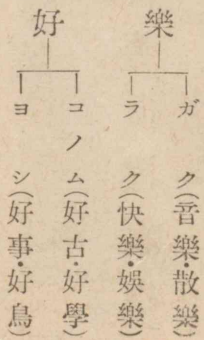 樂
ガク(音樂・散樂)
ラク(快樂・娯樂)
好
コノム(好古・好學)
ヨシ(好事・好鳥)